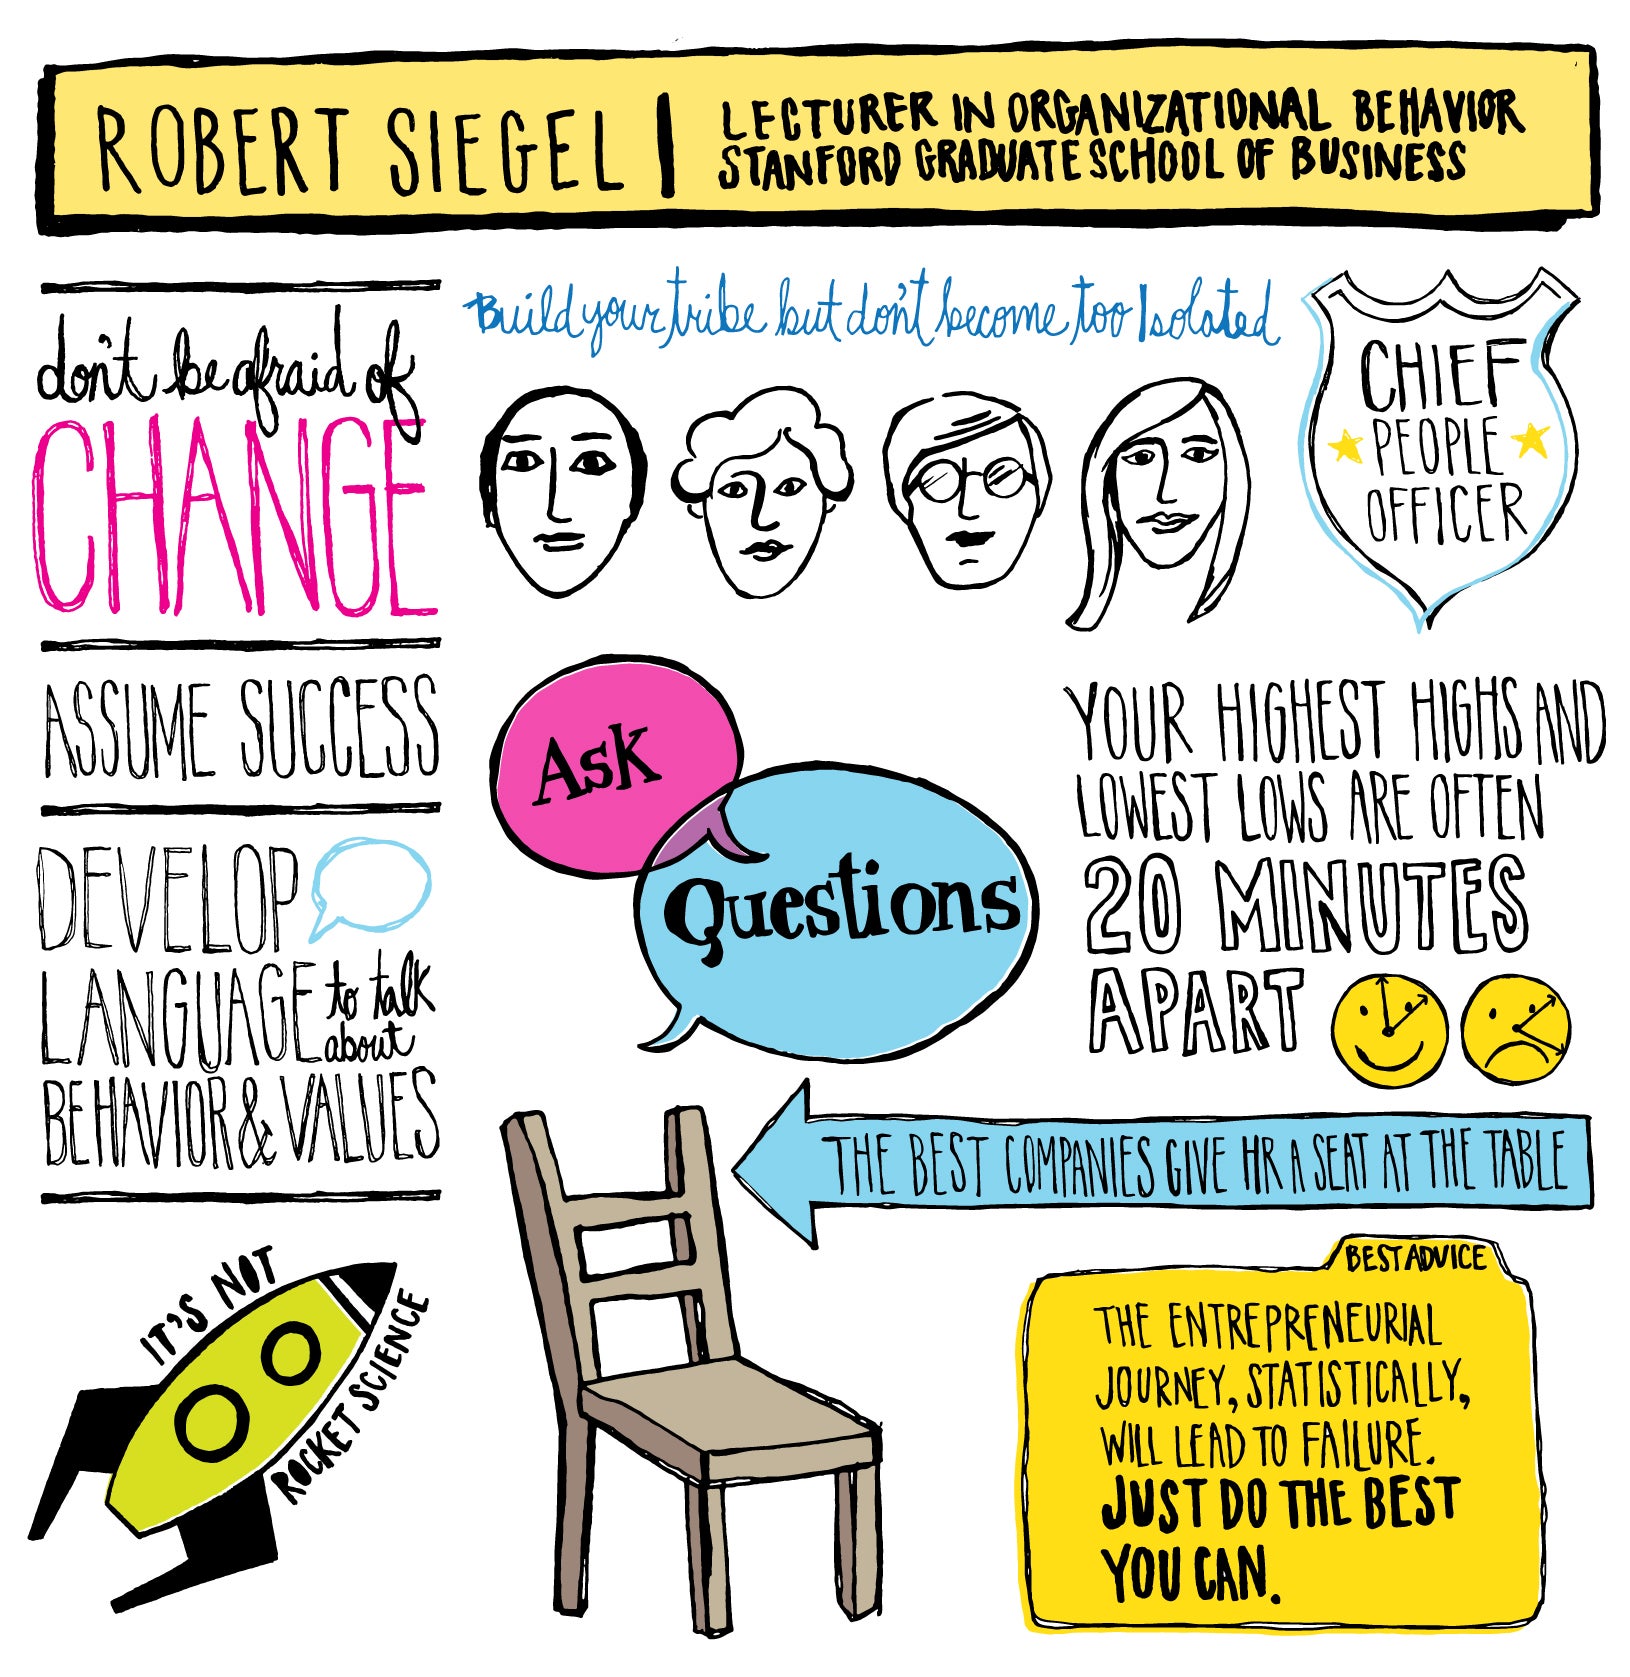 ROBERT SIEGEL |
LECTURER IN ORGANIZATIONAL BEHAVIOR
STANFORD GRADUATE SCHOOL OF BUSINESS
don't be afraid of
CHANGE
ASSUME SUCCESS
DEVELOP
LANGUAGE to talk
about
BEHAVIOR & VALUES
IT'S NOT
ROCKET SCIENCE
Build your tribe but don't become too Isolated
CHIEF
PEOPLE
OFFICER
Ask
Questions
YOUR HIGHEST HIGHS AND
LOWEST LOWS ARE OFTEN
20 MINUTES
APART
THE BEST COMPANIES GIVE HR A SEAT AT THE TABLE
BEST ADVICE
THE ENTREPRENEURIAL
JOURNEY, STATISTICALLY,
WILL LEAD TO FAILURE.
JUST DO THE BEST
YOU CAN.